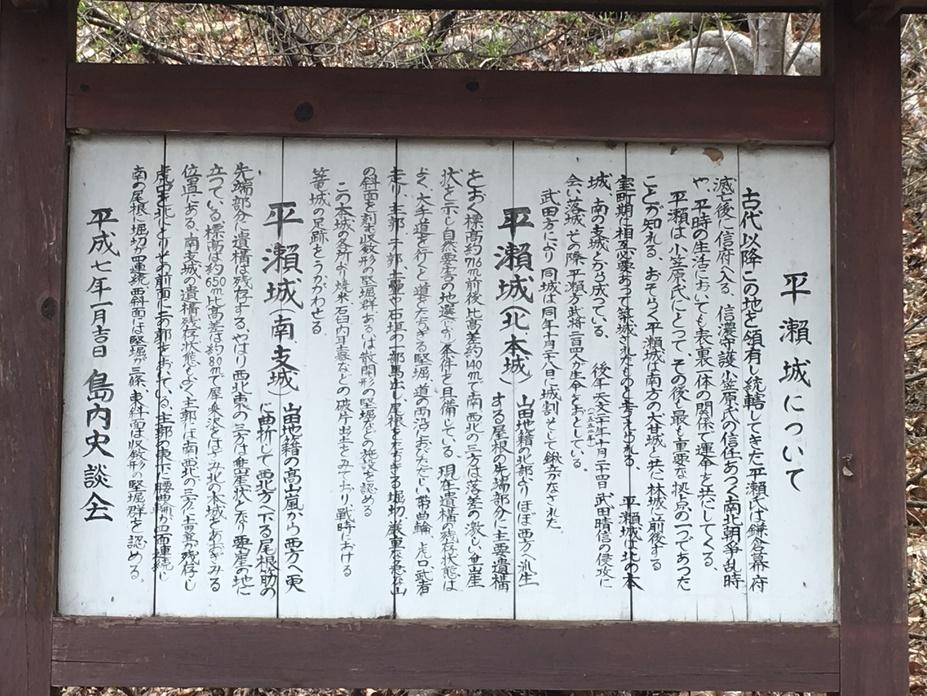 平瀬城について
古代以降この地を領有し統轄してきた平瀬氏は鎌倉幕府
滅亡後に信府へ入る、信濃守護小笠原氏の信任あつく南北朝争乱時
や、平時の生活においても表裏一体の関係で運命を共にしてくる、
平瀬は小笠原氏にとって その後も最も重要な拠点の一つであった
ことが知れる、おそらく平瀬城は南方の犬甘城と共に林城と前後する
室町期に相互必要あって築城されたものと考えられる、 平瀬城は北の本
城、南の支城とから成っている、 後年天文二十年十月二十四日 武田晴信の侵攻に
会い落城、その際平瀬方武将二百四人が生命をおとしている、
武田方により 同城は同年十月二八日に城割そして鍬立がなされた
平瀬城(北本城) 当地籍の北部よりほぼ西方へ派生
する尾根の先端部分に主要遺構
標高約716m前後 比高差約140mで南西北の三方は落差の激しい垂崖
状を示し自然要害の地選 条件を具備している、現在遺構の残存状態は
よく、大手道を行くと道をたちきる堅堀、道の両沿 帯曲輪、虎口武者
走り、主郭、 郭 土塁や石垣の一部 出し尾根をたちきる堀切、 山
の斜面を刻む收斂形の堅堀群あるいは散開形の堅堀などの施設を認める
この本城の各所より焼米、石臼 などの破片出土をみており 戦時における
篭城の足跡をうかがわせる
平瀬城(南支城) 当地籍の高山嵐から西方へ突
曲折して西方へ下る尾根肋の
先端部分に遺構は残存する、やはり西北東の三方は垂崖状となり 要崖の地に
立っている、標高は約650m 比高差は約80mで 北の本城をあおぎみる
位置にある、南支城の遺構残存状態もよく主郭には南西北の三方に土塁が残存し
虎口を北に その前面に 郭をおいている、主郭の東に腰曲輪が四面連続し
南の尾根に堀切が四重続、西斜面には堅堀が三條、東斜面は收斂形の堅堀群を認める。
平成七年一月吉日 島内史談会